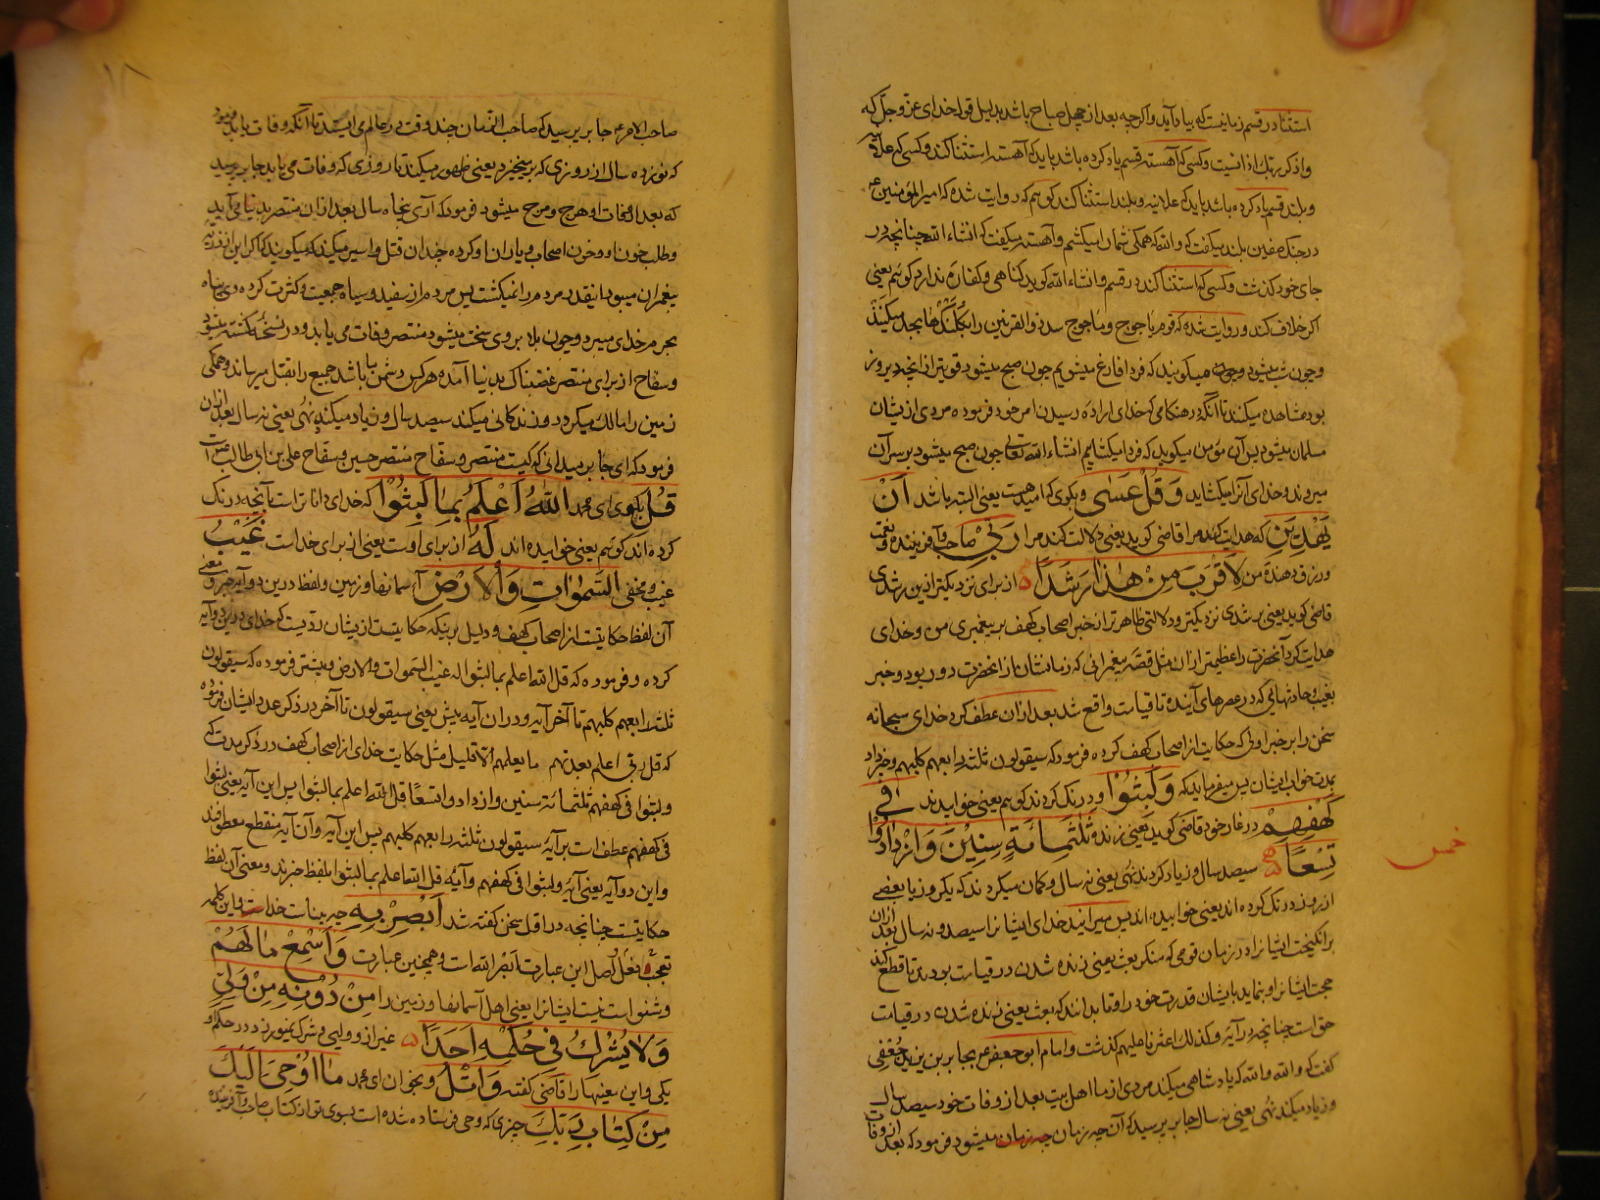 استثنا در قسم زمانیست که بیاد آید و اگرچه بعد از چهل صباح باشد بدلیل قول خدای عزوجل که
واذکر ربک اذا نسیت و کسی که آهسته قسم یاد کرده باشد باید که آهسته استثنا کند و کسی که علانیه
و بلند قسم یاد کرده باشد باید که علانیه و بلند استثنا کند کوهم که روایت شده که امیرالمؤمنین ع
در جنک صفین بلند میکفت که والله که همکی شما را میکشم و آهسته میکفت که انشاء الله چنانچه در
جای خود کذشت و کسی که استثنا کند در قسم و انشاء الله کوید کناهی و کفاره ندارد کوهم یعنی
اکر خلاف کند و روایت شده که قوم یاجوج و ماجوج سد ذوالقرنین را بکلنکها بجد میکنند
و چون شب میشود میکویند که فردا فارغ میشویم چون صبح میشود قویتر از آنچه دیروز
بود مشاهده میکنند تا آنکه در هنکامی که خدای اراده رسیدن امر خود فرموده مردی از یشان
مسلمان میشود پس آن مؤمن میکوید که فردا میکشایم انشاء الله تعالی چون صبح میشود بر سر آن
میروند و خدای آنرا میکشاید وَقُلْ عَسٰى و بکوی که امید هست یعنی البته باشد اَنْ
يَهْدِيَنِ که هدایت کند مرا قاضی کوید یعنی دلالت کند مرا رَبّي صاحب و آفریننده و نعمت
و رزق دهنده من لِاَقْرَبَ مِنْ هٰذَا رَشَدًا از برای نزدیکتر ازین رشدی
قاضی کوید یعنی برشدی نزدیکتر و دلالتی ظاهرتر از خبر اصحاب کهف بر پیغمبری من و خدای
هدایت کرد آنحضرت را عظیمتر از آن مثل قصه پیغمرانی که زمانشان از آنحضرت دور بود و خبر
بغیب و حادثهائی که در عصرهای آینده تا قیامت واقع شد بعد از آن عطف کرد خدای سبحانه
سخن را بر خبر اولی که حکایت از اصحاب کهف کرده فرمود که سیقولون ثلثه رابعهم کلبهم و خبر داد
بمدت خواب ایشان پس میفرماید که وَلَبِثُوْا و درنک کردند کوهم یعنی خوابیدند فِي
كَهْفِهِمْ در غار خود قاضی کوید یعنی زنده ثَلٰثَمِائَةٍ سِنِيْنَ وَازْدَادُوْا
تِسْعًا سیصد سال و زیاد کردند نُهی یعنی نه سال و کمان میکردند که یکروز یا بعضی
از روز درنک کرده اند یعنی خوابیده اند پس میرانید خدای ایشانرا سیصد و نه سال بعد از آن
برانکیخت ایشانرا در زمان قومی که منکر بعث یعنی زنده شدن در قیامت بودند تا قطع کند
حجت ایشانرا و بنماید بایشان قدرت خود را و تا بدانند که بعث یعنی زنده شدن در قیامت
حق است چنانچه در آیه و کذلک اعثرنا علیهم کذشت و امام ابوجعفر ع بجابر بن یزید جعفی
کفت که والله والله که پادشاهی میکند مردی از ما اهل بیت بعد از وفات خود سیصد سال
و زیاد میکند نُهی یعنی نه سال جابر پرسید که آن چه زمان میشود فرمود که بعد از وفات
خمس
صاحب الامر ع جابر پرسید که صاحب الزمان چند وقت در عالم می ایستد تا آنکه وفات یابد فرمود
که نوزده سال از روزی که بر میخیزد یعنی ظهور میکند تا روزی که وفات می یابد جابر پرسید
که بعد از وفات او هرج و مرج میشود فرمود که آری پنجاه سال بعد از آن منتصر بدنیا می آید
و طلب خون او و خون اصحاب و یاران او کرده چندان قتل و اسیر میکند که میکویند که اکر این از ذریه
پیغمران میبود اینقدر مردم را نمیکشت پس مردم از سفید و سیاه جمعیت و کثرت کرده وی پناه
بحرم خدای میبرد و چون بلا بر وی سخت میشود منتصر وفات می یابد و در نسخه کشته میشود
و سفاح از برای منتصر غضبناک بدنیا آمده هر کس دشمن ما باشد جمیع را بقتل میرساند و همکی
زمین را مالک میکردد و زندکانی میکند سیصد سال و زیاد میکند نُهی یعنی نه سال بعد از آن
فرمود که ای جابر میدانی که کیست منتصر و سفاح منتصر حسین و سفاح علی بن ابی طالب است
قُلِ بکوی ای محمد اللهُ اَعْلَمُ بِمَا لَبِثُوْا که خدای داناتر است بآنچه درنک
کرده اند کوهم یعنی خوابیده اند لَهُ از برای اوست یعنی از برای خداست غَيْبُ
غیب و مخفی السَّمٰوَاتِ وَالْاَرْضِ آسمانها و زمین و لفظ درین دو آیه خبر و معنی
آن لفظ حکایتست از اصحاب کهف و دلیل برینکه حکایتست از یشان ردیست که خدای درین دو آیه
کرده و فرموده که قل الله اعلم بمالبثوا له غیب السموات والارض و پیشتر فرموده که سیقولون
ثلثه رابعهم کلبهم تا آخر آیه و در آن آیه پیش یعنی سیقولون تا آخر در ذکر عدد ایشان فرموده
که قل ربی اعلم بعدتهم ما یعلمهم الا قلیل مثل حکایت خدای از اصحاب کهف در ذکر مدت که
ولبثوا فی کهفهم ثلثمائة سنین وازدادوا تسعا قل الله اعلم بمالبثوا پس این آیه یعنی لبثوا
فی کهفهم عطف است بر آیه سیقولون ثلثه رابعهم کلبهم پس این آیه و آن آیه منقطع معطوفند
و این دو آیه یعنی آیه ولبثوا فی کهفهم و آیه قل الله اعلم بمالبثوا بلفظ خبرند و معنی آن لفظ
حکایتست چنانچه در اول سخن کفته شد اَبْصِرْ بِهِ چه بیناست خدا این کلمه
تعجب اصل این عبارت ابصر الله است و همچنین عبارت وَاَسْمِعْ مَا لَهُمْ
و شنواست نیست ایشانرا یعنی اهل آسمانها و زمین را مِنْ دُوْنِهِ مِنْ وَلِيٍّ
غیر از و ولیی وَلَا يُشْرِكُ فِي حُكْمِهِ اَحَدًا و شرک نمیورزد در حکم او
یکی و این معنیها را قاضی کفته وَاتْلُ و بخوان ای محمد مَا اُوْحِيَ اِلَيْكَ
مِنْ كِتَابِ رَبِّكَ چیزی که وحی فرستاده شده است بسوی تو از کتاب صاحب و آفریننده